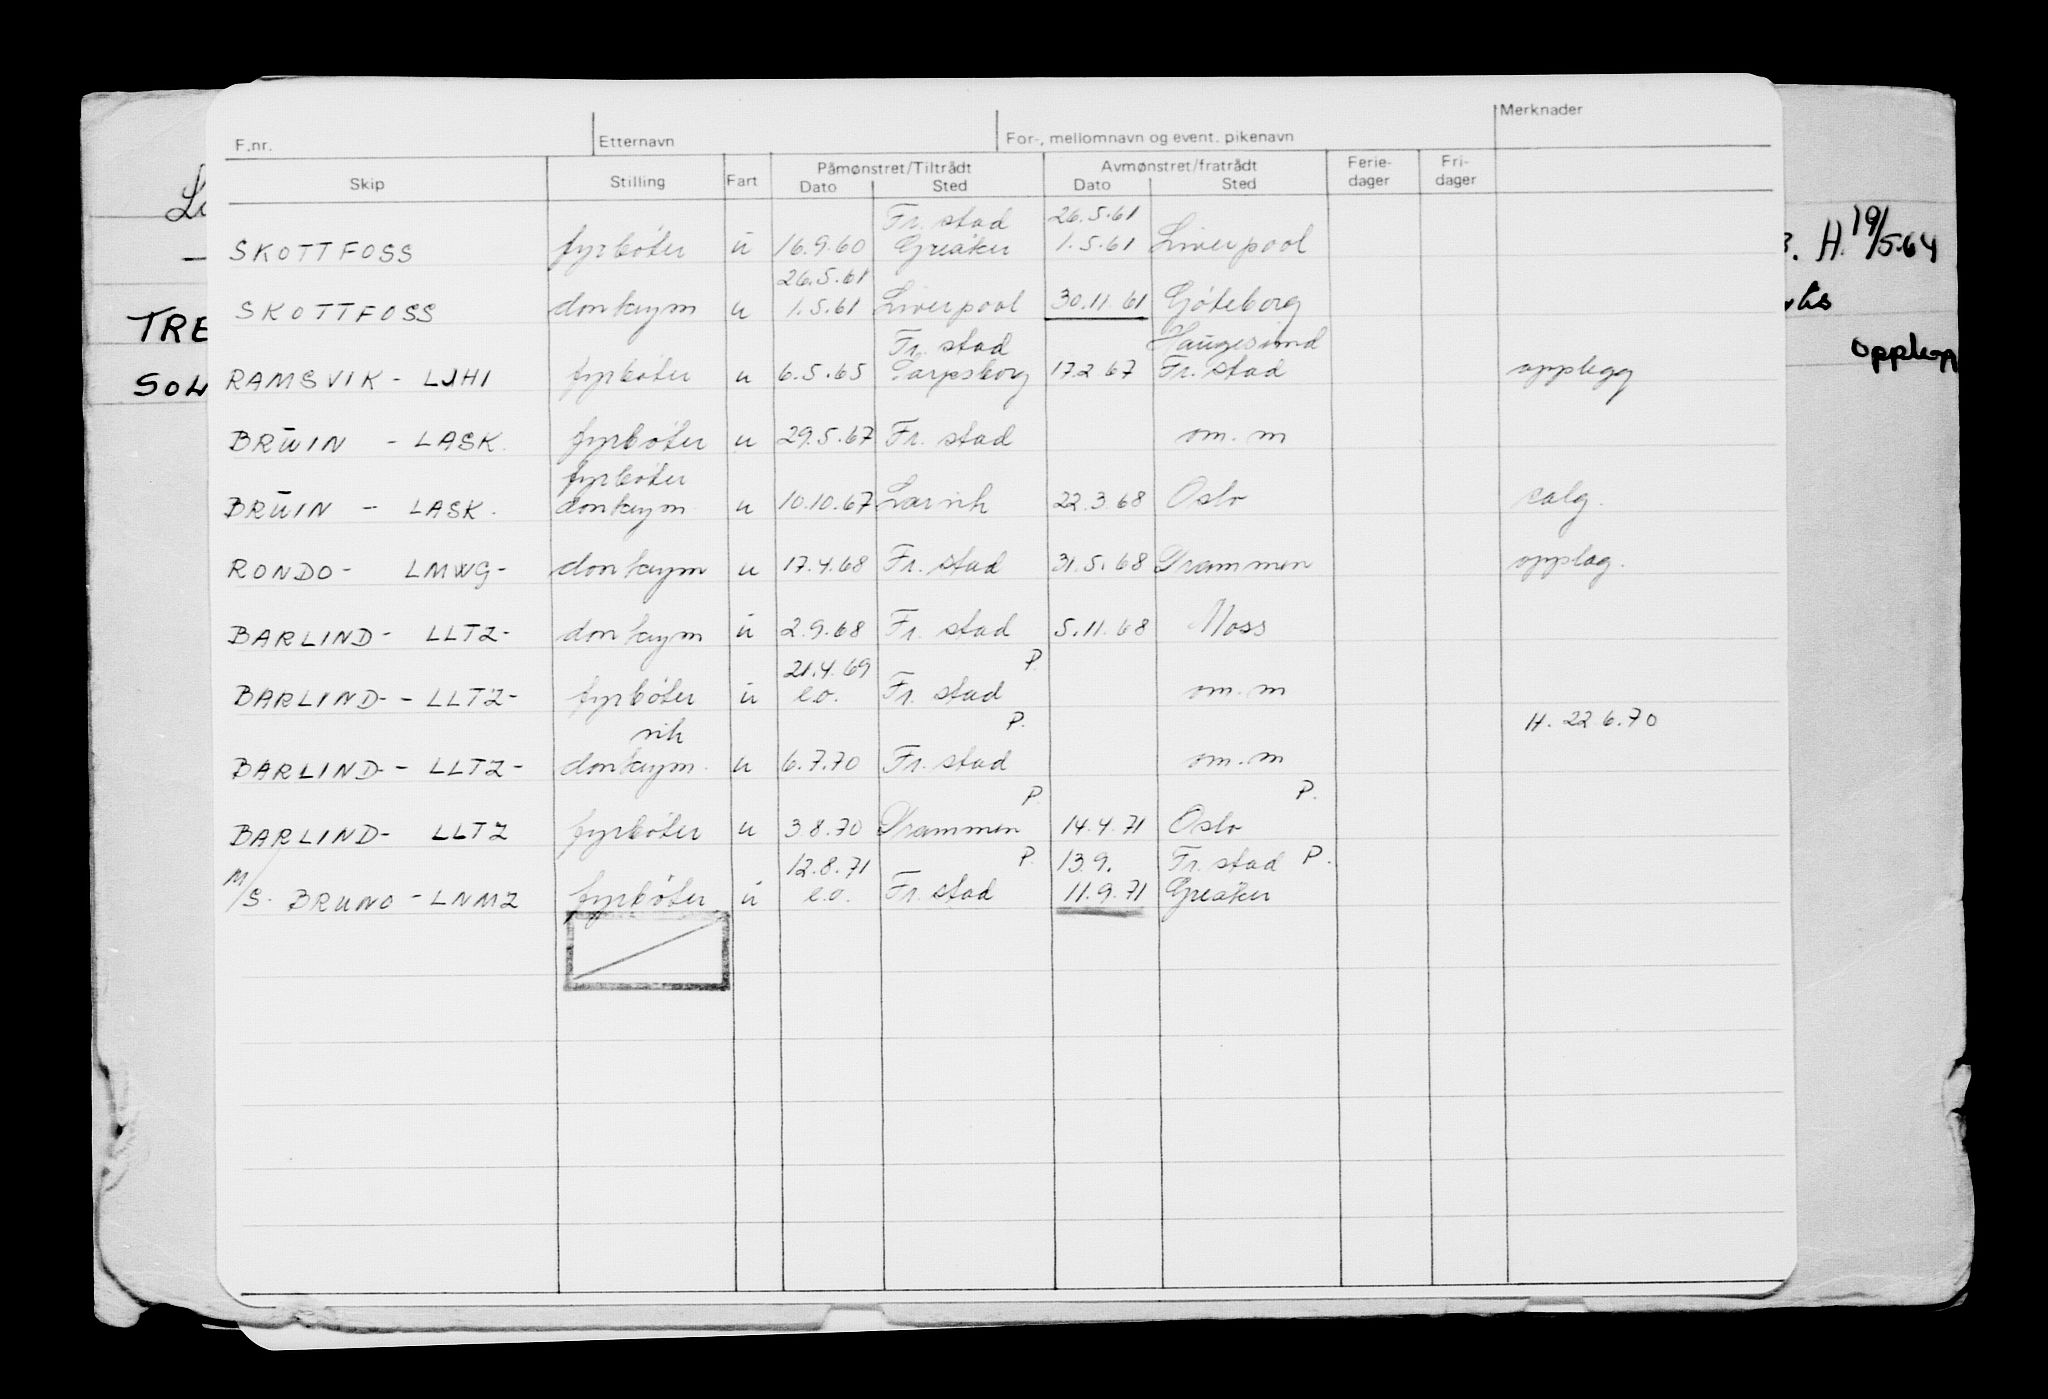 Merknader
F.nr. Etternavn For-, mellomnavn og event. pikenavn
Påmønstret/Tiltrådt Avmønstret/fratrådt Ferie- Fri-
Skip Stilling Fart Dato Sted Dato Sted dager dager
Fr. stad 26.5.61
SKOTTFOSS fyrbøter u 16.9.60 Greåker 1.5.61 Liverpool
26.5.61
SKOTTFOSS donkeym u 1.5.61 Liverpool 30.11.61 Gøteborg
Fr. stad Haugesund
RAMSVIK - LJHI fyrbøter u 6.5.65 Sarpsborg 17.2.67 Fr. stad opplegg
BRUIN - LASK. fyrbøter u 29.5.67 Fr. stad om. m
fyrbøter
BRUIN - LASK. donkeym u 10.10.67 Larvik 22.3.68 Oslo salg.
RONDO - LMWG - donkeym u 17.4.68 Fr. stad 31.5.68 Drammen opplag.
BARLIND - LLTZ - donkeym u 2.9.68 Fr. stad 5.11.68 Moss
21.4.69 P.
BARLIND - - LLTZ - fyrbøter u e.o. Fr. stad om. m
vik P. H. 22.6.70
BARLIND - - LLTZ - donkeym. u 6.7.70 Fr. stad om. m
P. P.
BARLIND - LLTZ fyrbøter u 3.8.70 Drammen 14.4.71 Oslo
12.8.71 P. 13.9. Fr. stad P.
M/S. BRUNO - LNMZ fyrbøter u e.o. Fr. stad 11.9.71 Greåker
TRE
SOL
H. 19/5.64
opplag